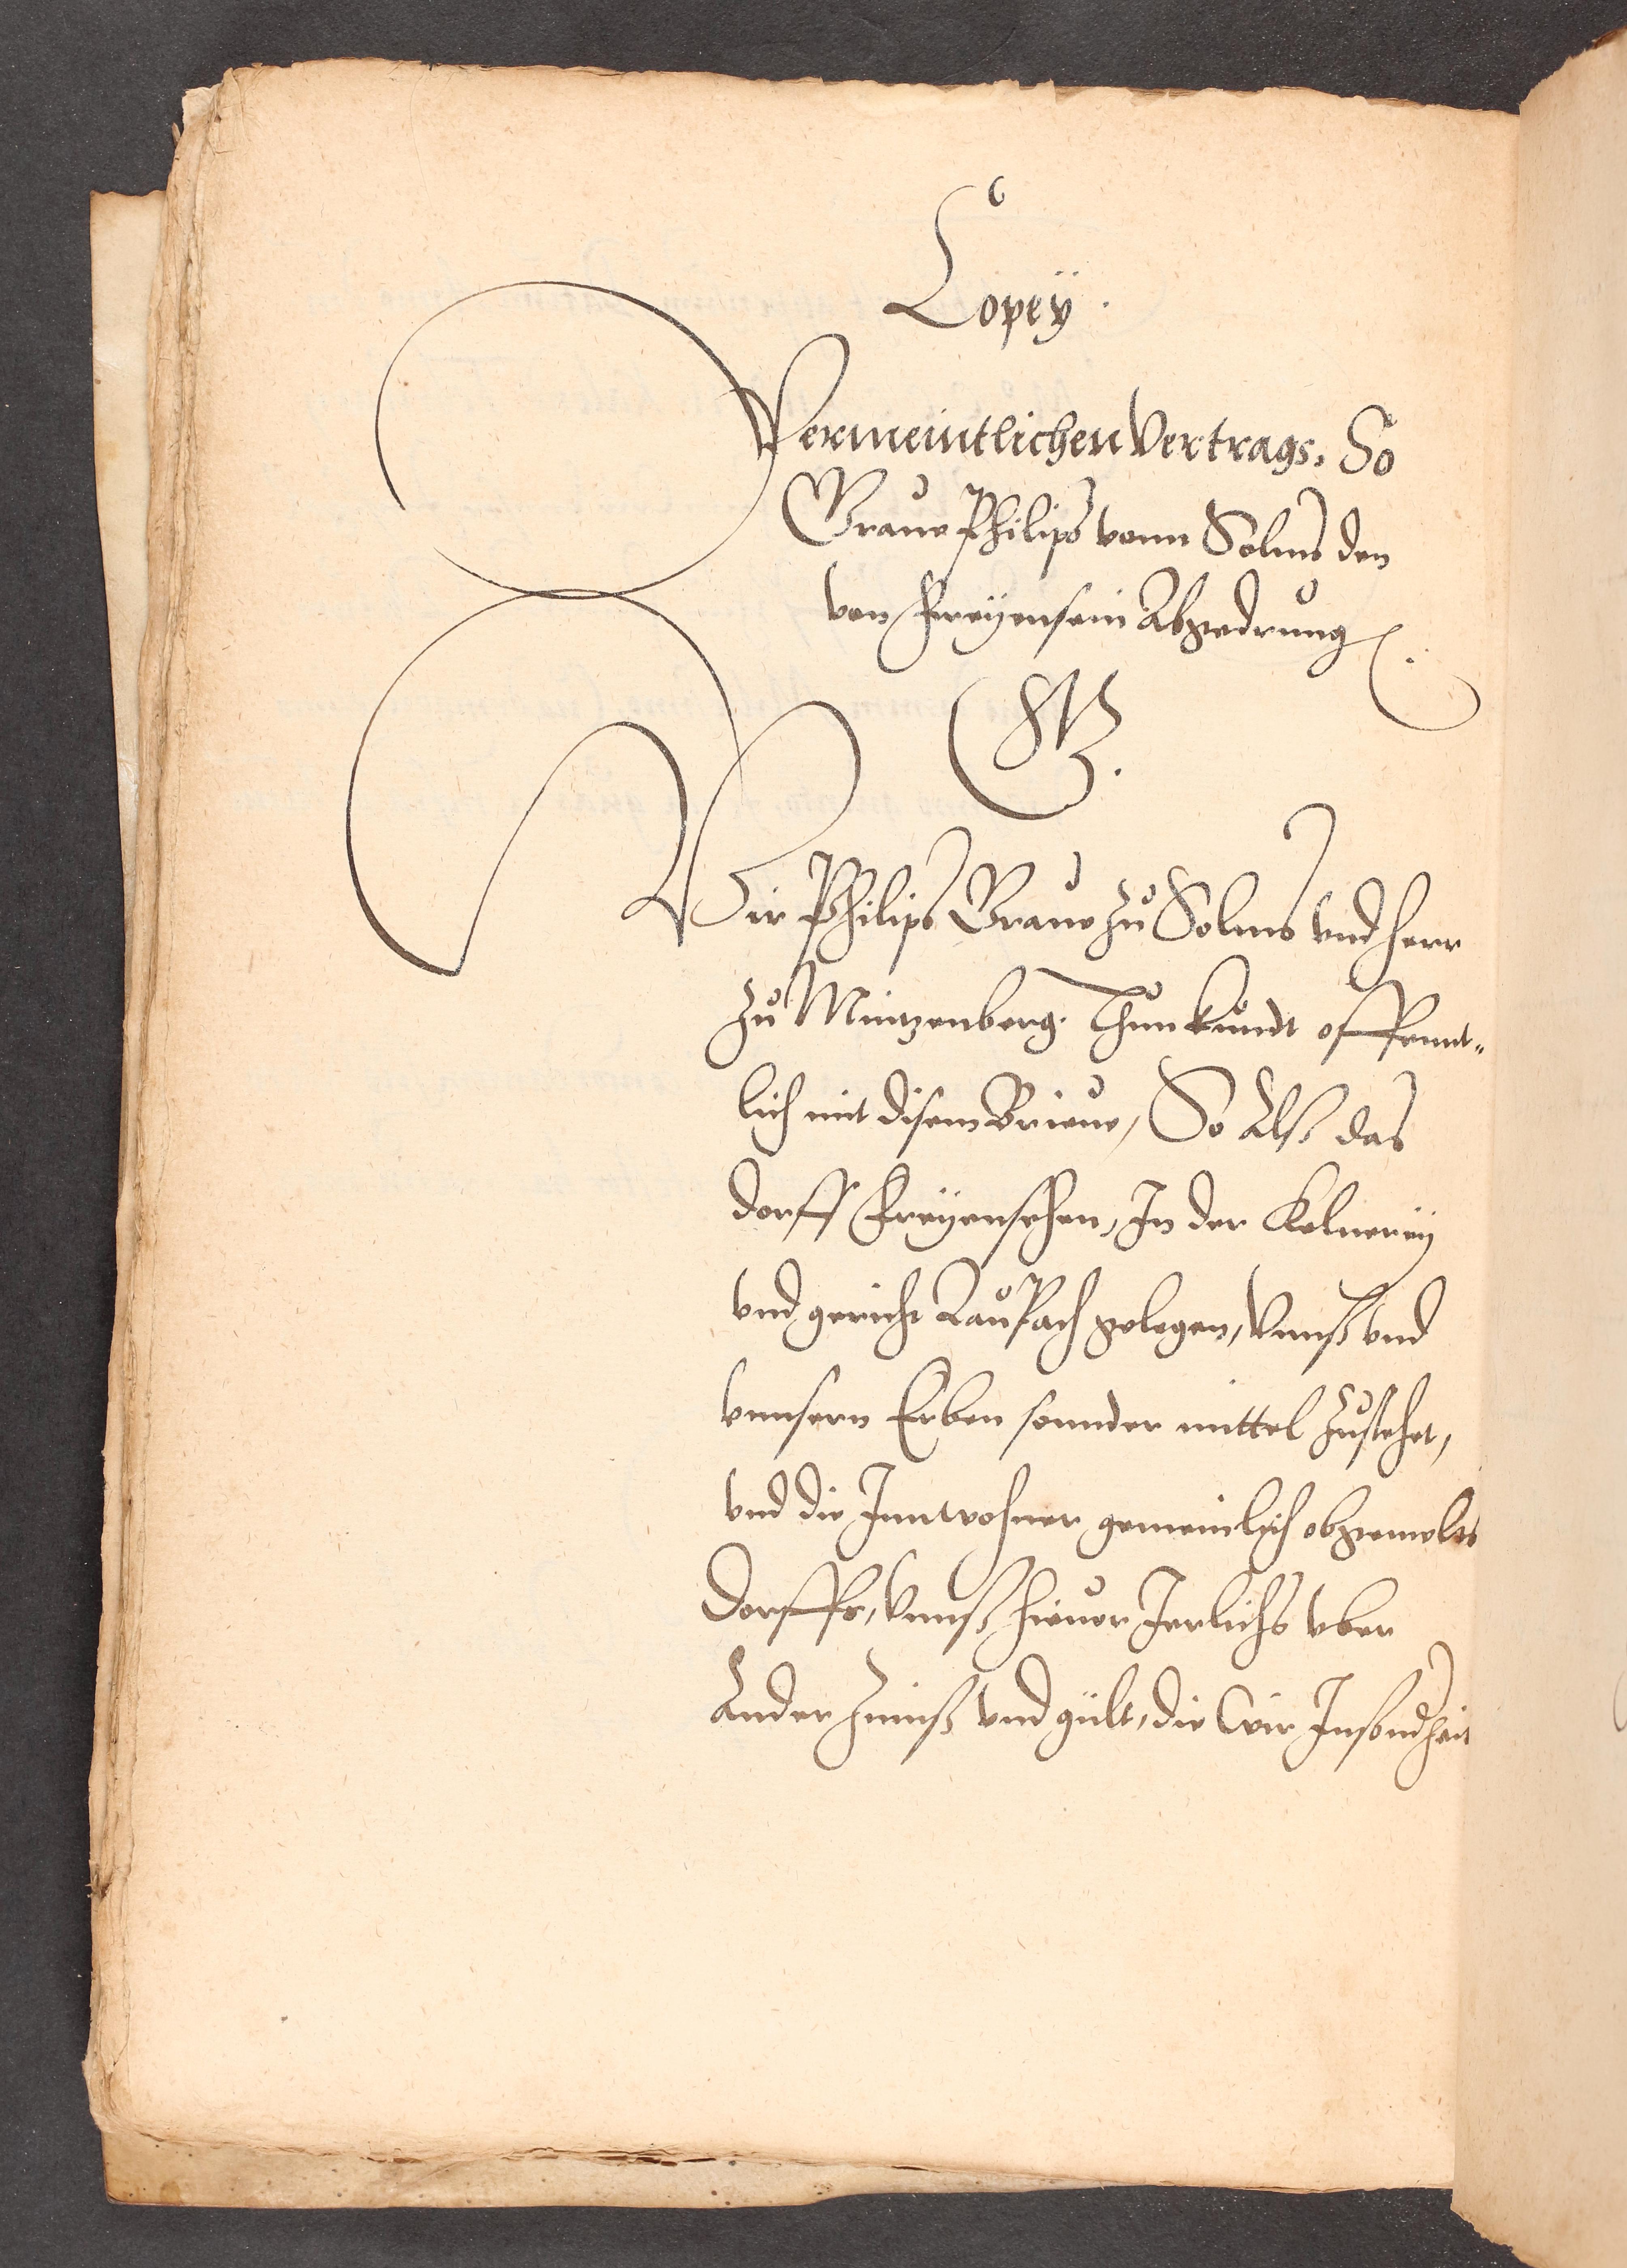 Copey.
Vermeintlichen Vertrags, So
Graue Philips vonn Solms den
von Freyensein Abgedrung
Wir Philips Graue zu Solms vnd herr
zu Mintzenberg. Thun kundt offennt„
lich mit disem Brieue, So Alß das
dorff Freyensehen, In der Kelnerey
vnd gericht Laupach gelegen, Vnnß vnd
vnnsern Erben sonnder mittel zustehet,
vnd die Innwohner gemeinlich obgemelts
Dorffs, Vnnß hieuor Jerlichs vber
Ander Zinnß vnd gült, die Wir Insondheit